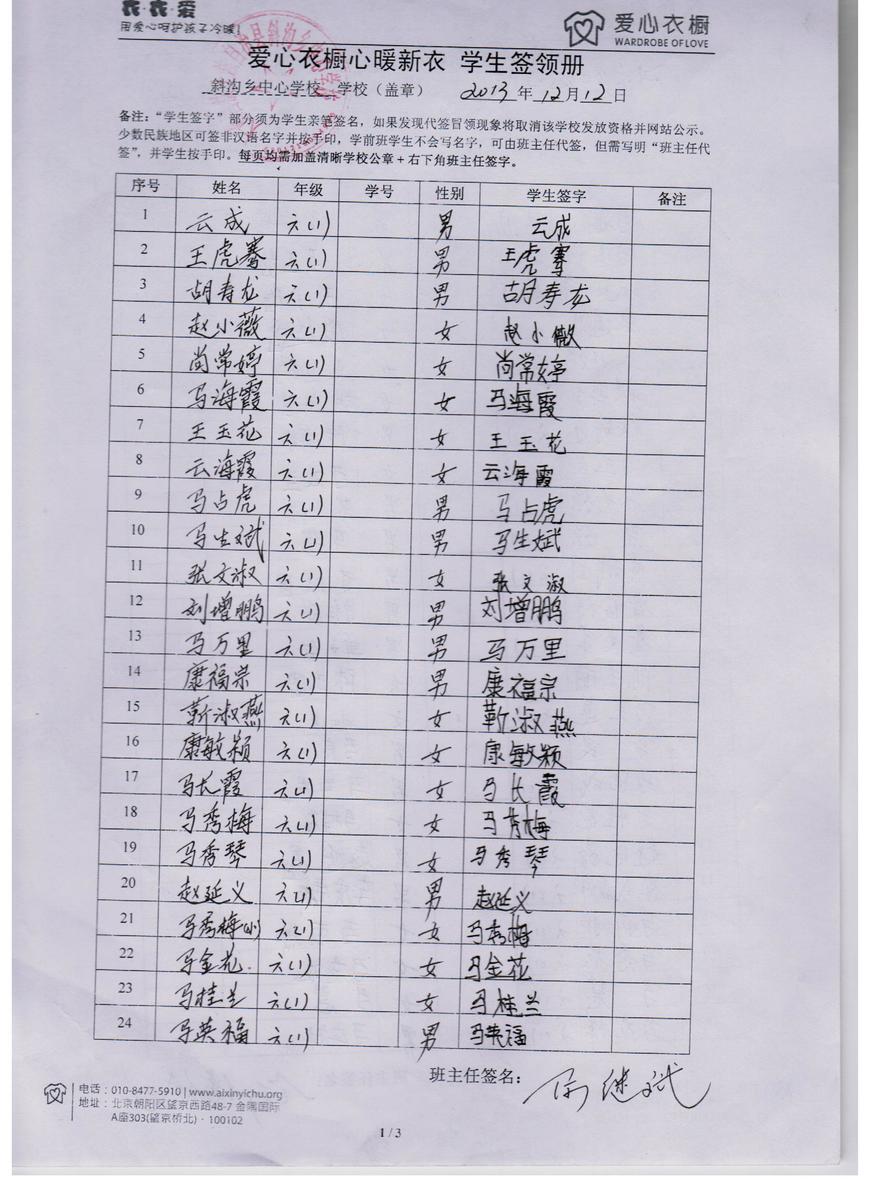 衣·衣·爱
用爱心呵护孩子冷暖!
爱心衣橱
WARDROBE OF LOVE
爱心衣橱心暖新衣 学生签领册
斜沟乡中心学校 学校（盖章） 2013 年 12 月 12 日
备注：“学生签字”部分须为学生亲笔签名，如果发现代签冒领现象将取消该学校发放资格并网站公示。
少数民族地区可签非汉语名字并按手印，学前班学生不会写名字，可由班主任代签，但需写明“班主任代
签”，并学生按手印。每页均需加盖清晰学校公章+右下角班主任签字。
序号 姓名 年级 学号 性别 学生签字 备注
1 云成 六(1) 男 云成
2 王虎骞 六(1) 男 王虎骞
3 胡寿龙 六(1) 男 胡寿龙
4 赵小薇 六(1) 女 赵小薇
5 尚常婷 六(1) 女 尚常婷
6 马海霞 六(1) 女 马海霞
7 王玉花 六(1) 女 王玉花
8 云海霞 六(1) 女 云海霞
9 马占虎 六(1) 男 马占虎
10 马生斌 六(1) 男 马生斌
11 张文淑 六(1) 女 张文淑
12 刘增鹏 六(1) 男 刘增鹏
13 马万里 六(1) 男 马万里
14 康福宗 六(1) 男 康福宗
15 靳淑燕 六(1) 女 靳淑燕
16 康敏颖 六(1) 女 康敏颖
17 马长霞 六(1) 女 马长霞
18 马秀梅 六(1) 女 马秀梅
19 马秀琴 六(1) 女 马秀琴
20 赵延义 六(1) 男 赵延义
21 马秀梅(小) 六(1) 女 马秀梅
22 马金花 六(1) 女 马金花
23 马桂兰 六(1) 女 马桂兰
24 马英福 六(1) 男 马英福
班主任签名：
电话：010-8477-5910 | www.aixinyichu.org
地址：北京朝阳区望京西路48-7 金隅国际
A座303(望京桥北)·100102
1 / 3